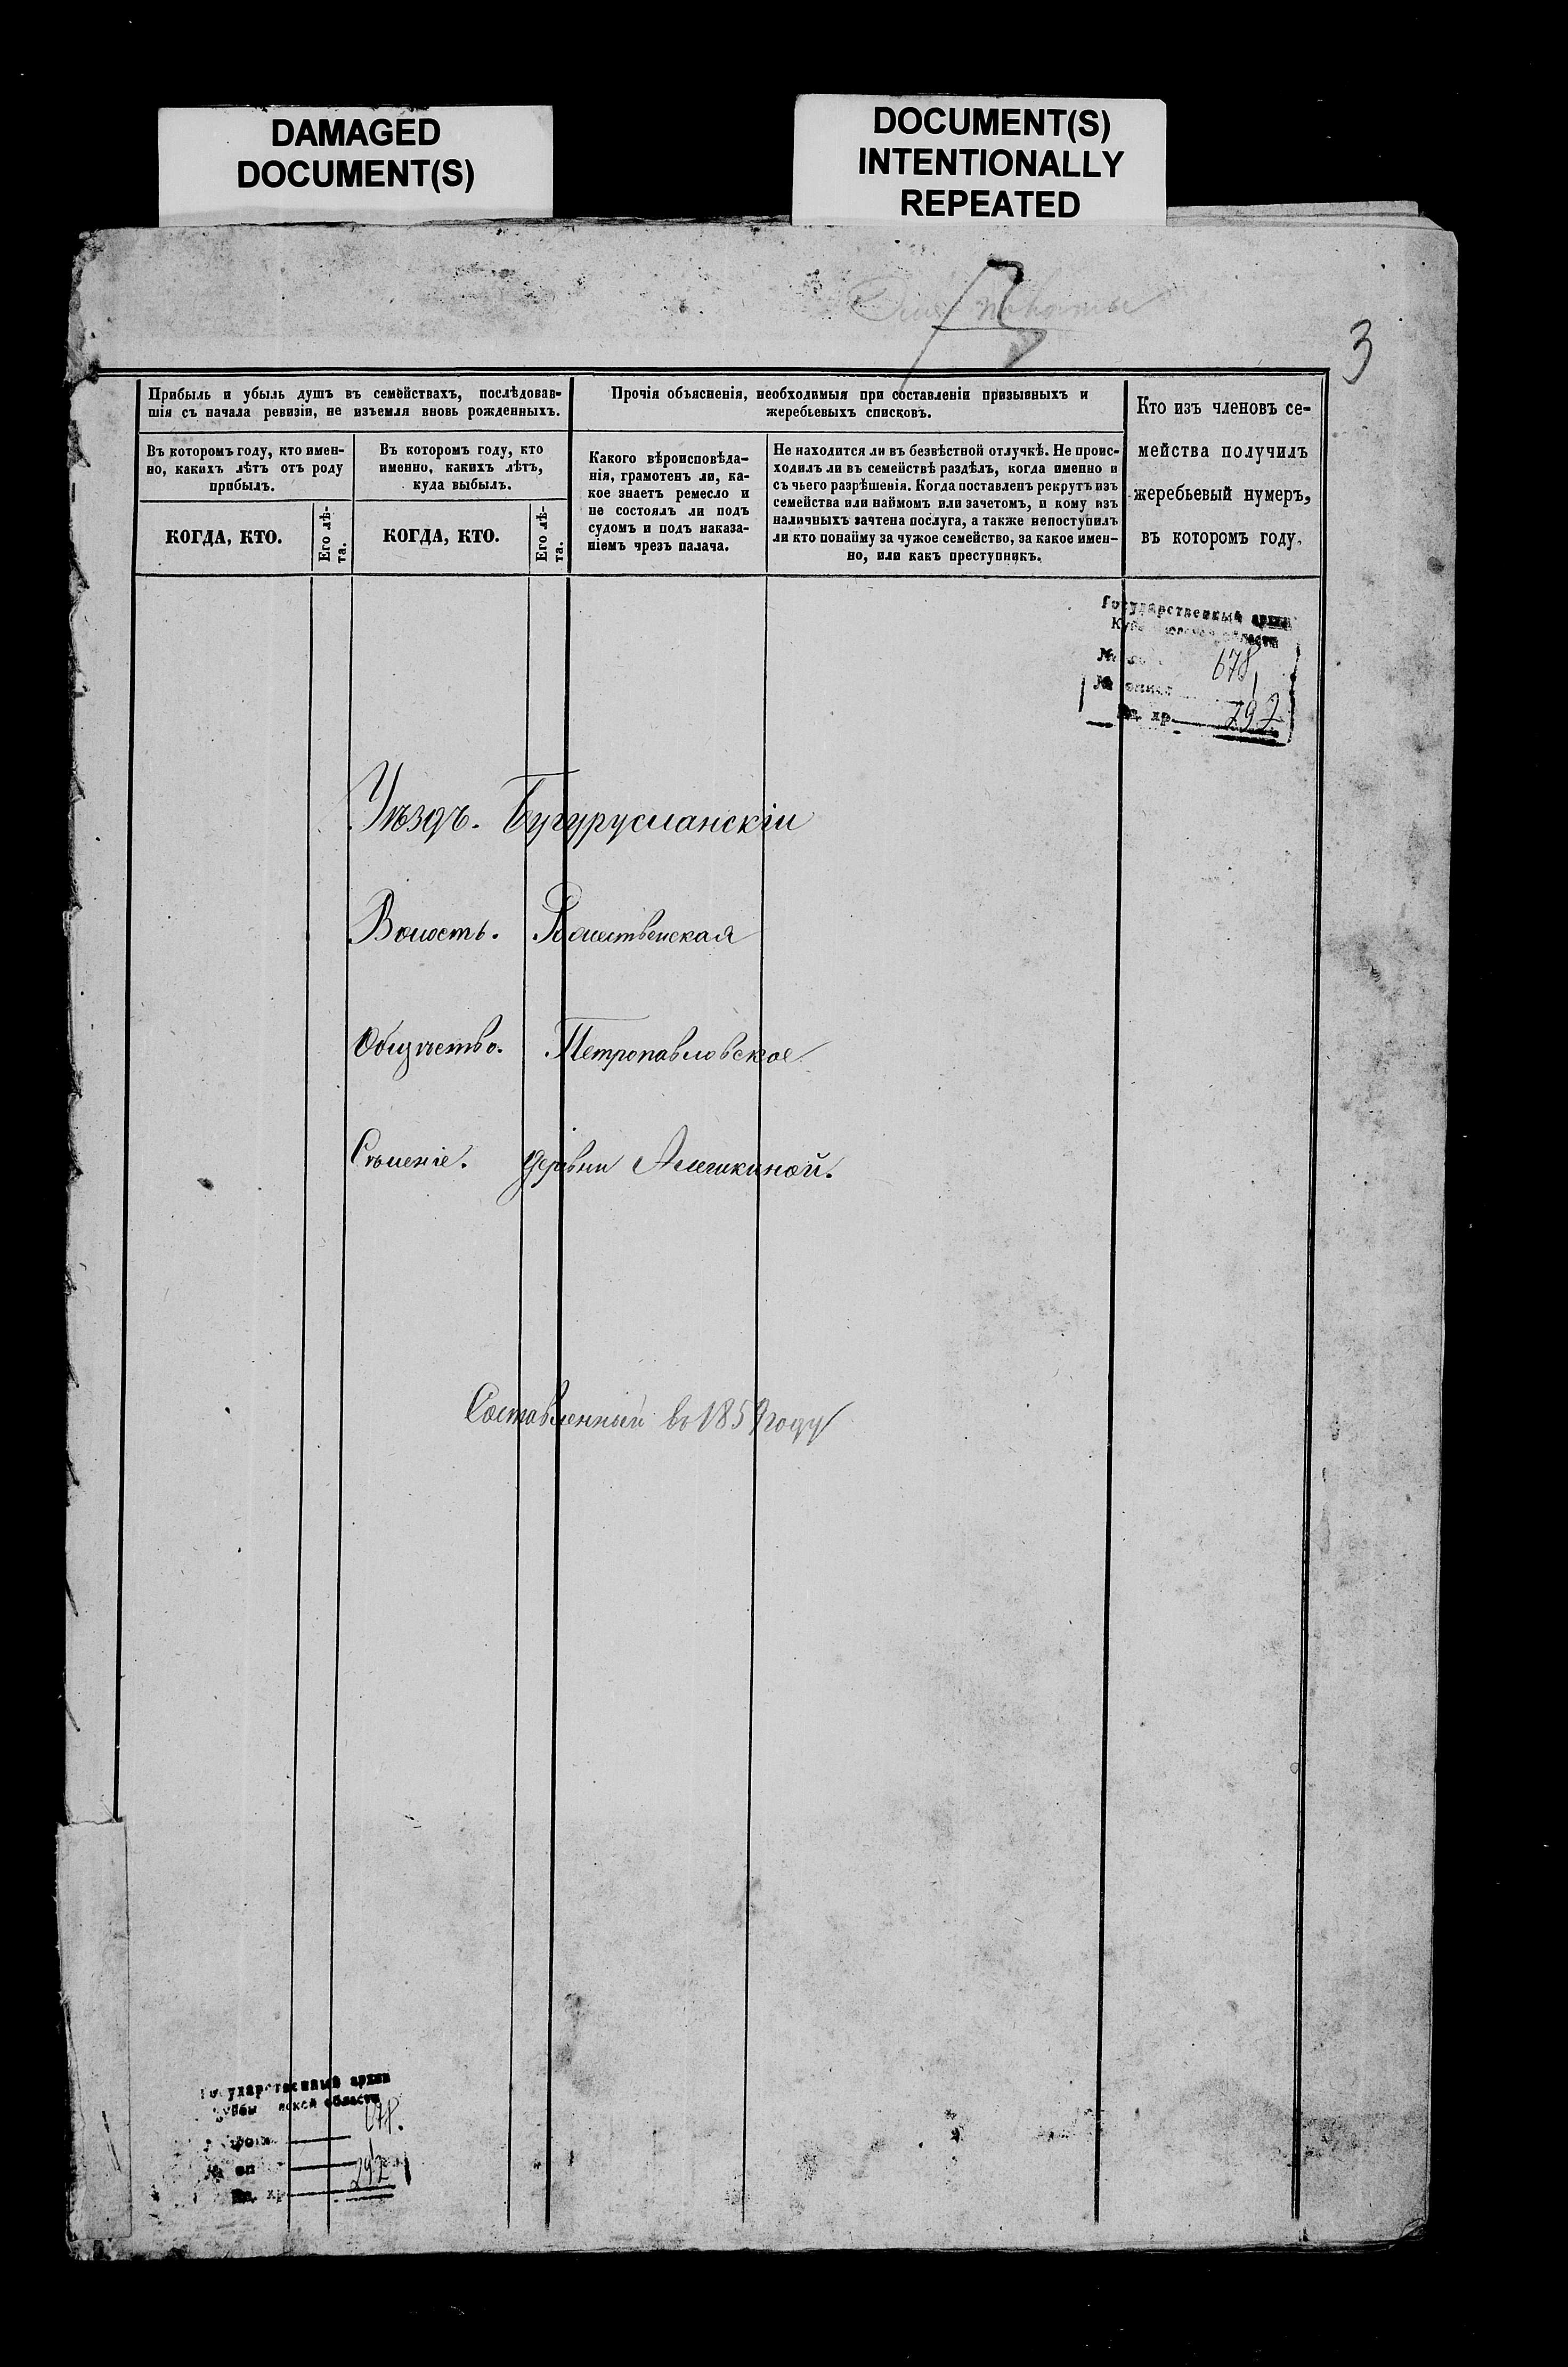 DAMAGED
DOCUMENT(S)
DOCUMENT(S)
INTENTIONALLY
REPEATED
3
Прибыль и убыль душъ въ семействахъ, послѣдовав-
шія съ начала ревизіи, не изъемля вновь рожденныхъ.
Въ которомъ году, кто имен-
но, какихъ лѣтъ отъ роду
прибылъ.
КОГДА, КТО.
Его лѣ-
та.
Въ которомъ году, кто
именно, какихъ лѣтъ,
куда выбылъ.
КОГДА, КТО.
Его лѣ-
та.
Прочія объясненія, необходимыя при составленіи призывныхъ и
жеребьевыхъ списковъ.
Какого вѣроисповѣда-
нія, грамотенъ ли, ка-
кое знаетъ ремесло и
не состоялъ ли подъ
судомъ и подъ наказа-
ніемъ чрезъ палача.
Не находится ли въ безвѣстной отлучкѣ. Не проис-
ходилъ ли въ семействѣ раздѣлъ, когда именно и
съ чьего разрѣшенія. Когда поставленъ рекрутъ изъ
семейства или наймомъ или зачетомъ, и кому изъ
наличныхъ зачтена послуга, а также непоступилъ
ли кто понайму за чужое семейство, за какое имен-
но, или какъ преступникъ.
Кто изъ членовъ се-
мейства получилъ
жеребьевый нумеръ,
въ которомъ году.
Государственный архив
области
№ 678
№
Ед. хр. 292
Уѣздъ. Бугурусланскіи
Волость.
Общество. Петропавловское
Сѣленіе. деревни Алешкиной.
Составленный въ 1859 году
Государственный архив
области
678.
№ оп
Ед. хр 292